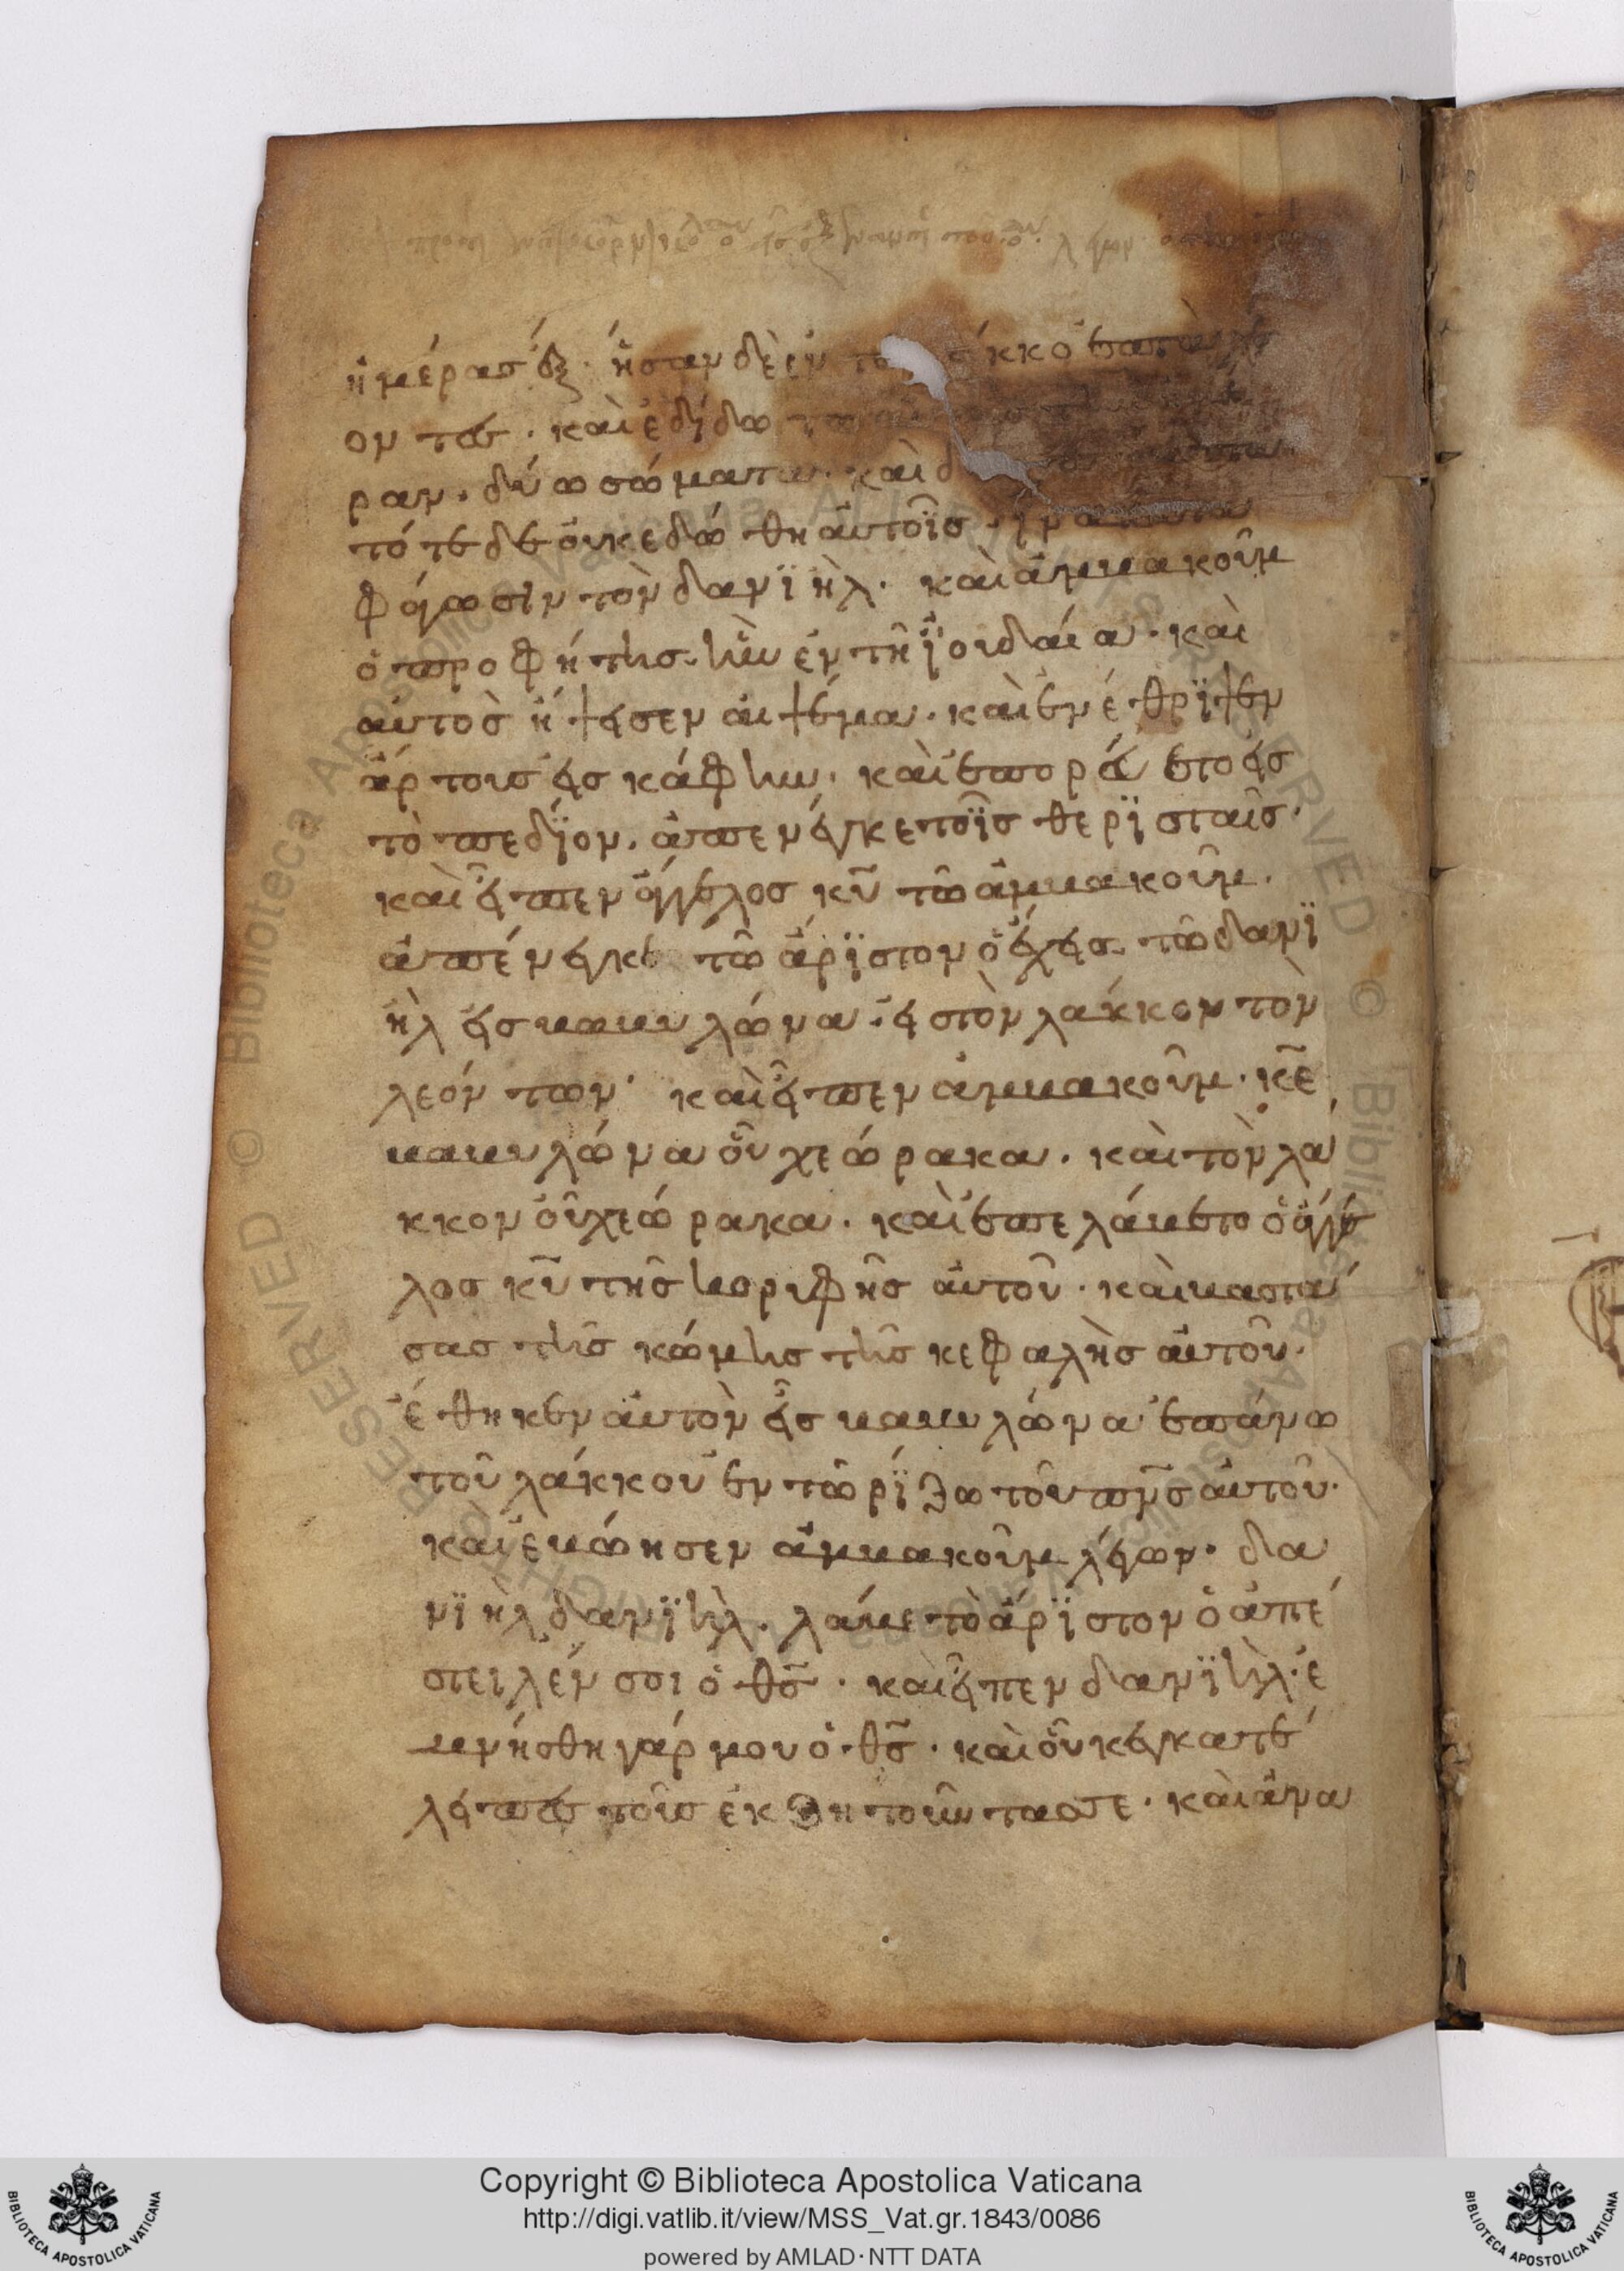 ἡμέρας ἕξ· ἦσαν δὲ ἐν τῶ λάκκο ἑπτὰ λέ
οντες· καὶ ἐδίδω
ραν. δύω σώματα· καὶ δ
τότε δὲ οὐκ εδώθη αὐτοῖς· ἵνα κατα
φάγωσιν τὸν δανϊὴλ· καὶ ἀμβακοῦμ
ὁ προφήτης ἦν ἐν τῆ ϊουδαία· καὶ
αὐτὸς ἥψησεν ἅψεμα· καὶ ἐνέθρϊψεν
ἄρτους εἰς κάφην· καὶ ἐπορεύετο εἰς
τὸ πεδϊον· ἀπενέγκε τοῖς θερϊσταῖς·
καὶ εἶπεν ἄγγελος κ̅υ̅ τῶ ἀμβακοῦμ·
ἀπένεγκε τῶ ἄρϊστον ὃ ἔχεις τῶ δανϊ
ὴλ εἰς βαβυλῶνα· εἰς τὸν λάκκον τὸν
λεόντων· καὶ εἶπεν ἀμβακοῦμ· κ̅ε̅
βαβυλώνα οὐχ εώρακα· καὶ τὸν λά
κκον οὐχ εώρακα· καὶ ἐπελάβετο ὁ ἄγγε
λος κ̅υ̅ τῆς κορυφῆς αὐτοῦ· καὶ βαστά
σας τῆς κόμης τῆς κεφαλῆς αὐτοῦ·
ἔθηκεν αὐτὸν εἰς βαβυλώνα ἐπάνω
τοῦ λάκκου ἐν τῶ ρϊζω τοῦ π̅ν̅ς̅ αὐτοῦ·
καὶ ἐβώησεν ἀμβακοῦμ λέγων· δα
νϊὴλ δανϊὴλ· λάβε τὸ ἄρϊστον ὃ ἀπέ
στειλέν σοι ὁ θ̅ς̅· καὶ εἶπεν δανϊὴλ· ἐ
μνήσθη γάρ μου ὁ θ̅ς̅· καὶ οὐκ ἐγκατέ
λειπες τοῖς ἐκζητοῦντας σε· καὶ ἀνα
Copyright © Biblioteca Apostolica Vaticana
http://digi.vatlib.it/view/MSS_Vat.gr.1843/0086
powered by AMLAD·NTT DATA
BIBLIOTECA APOSTOLICA VATICANA
BIBLIOTECA APOSTOLICA VATICANA